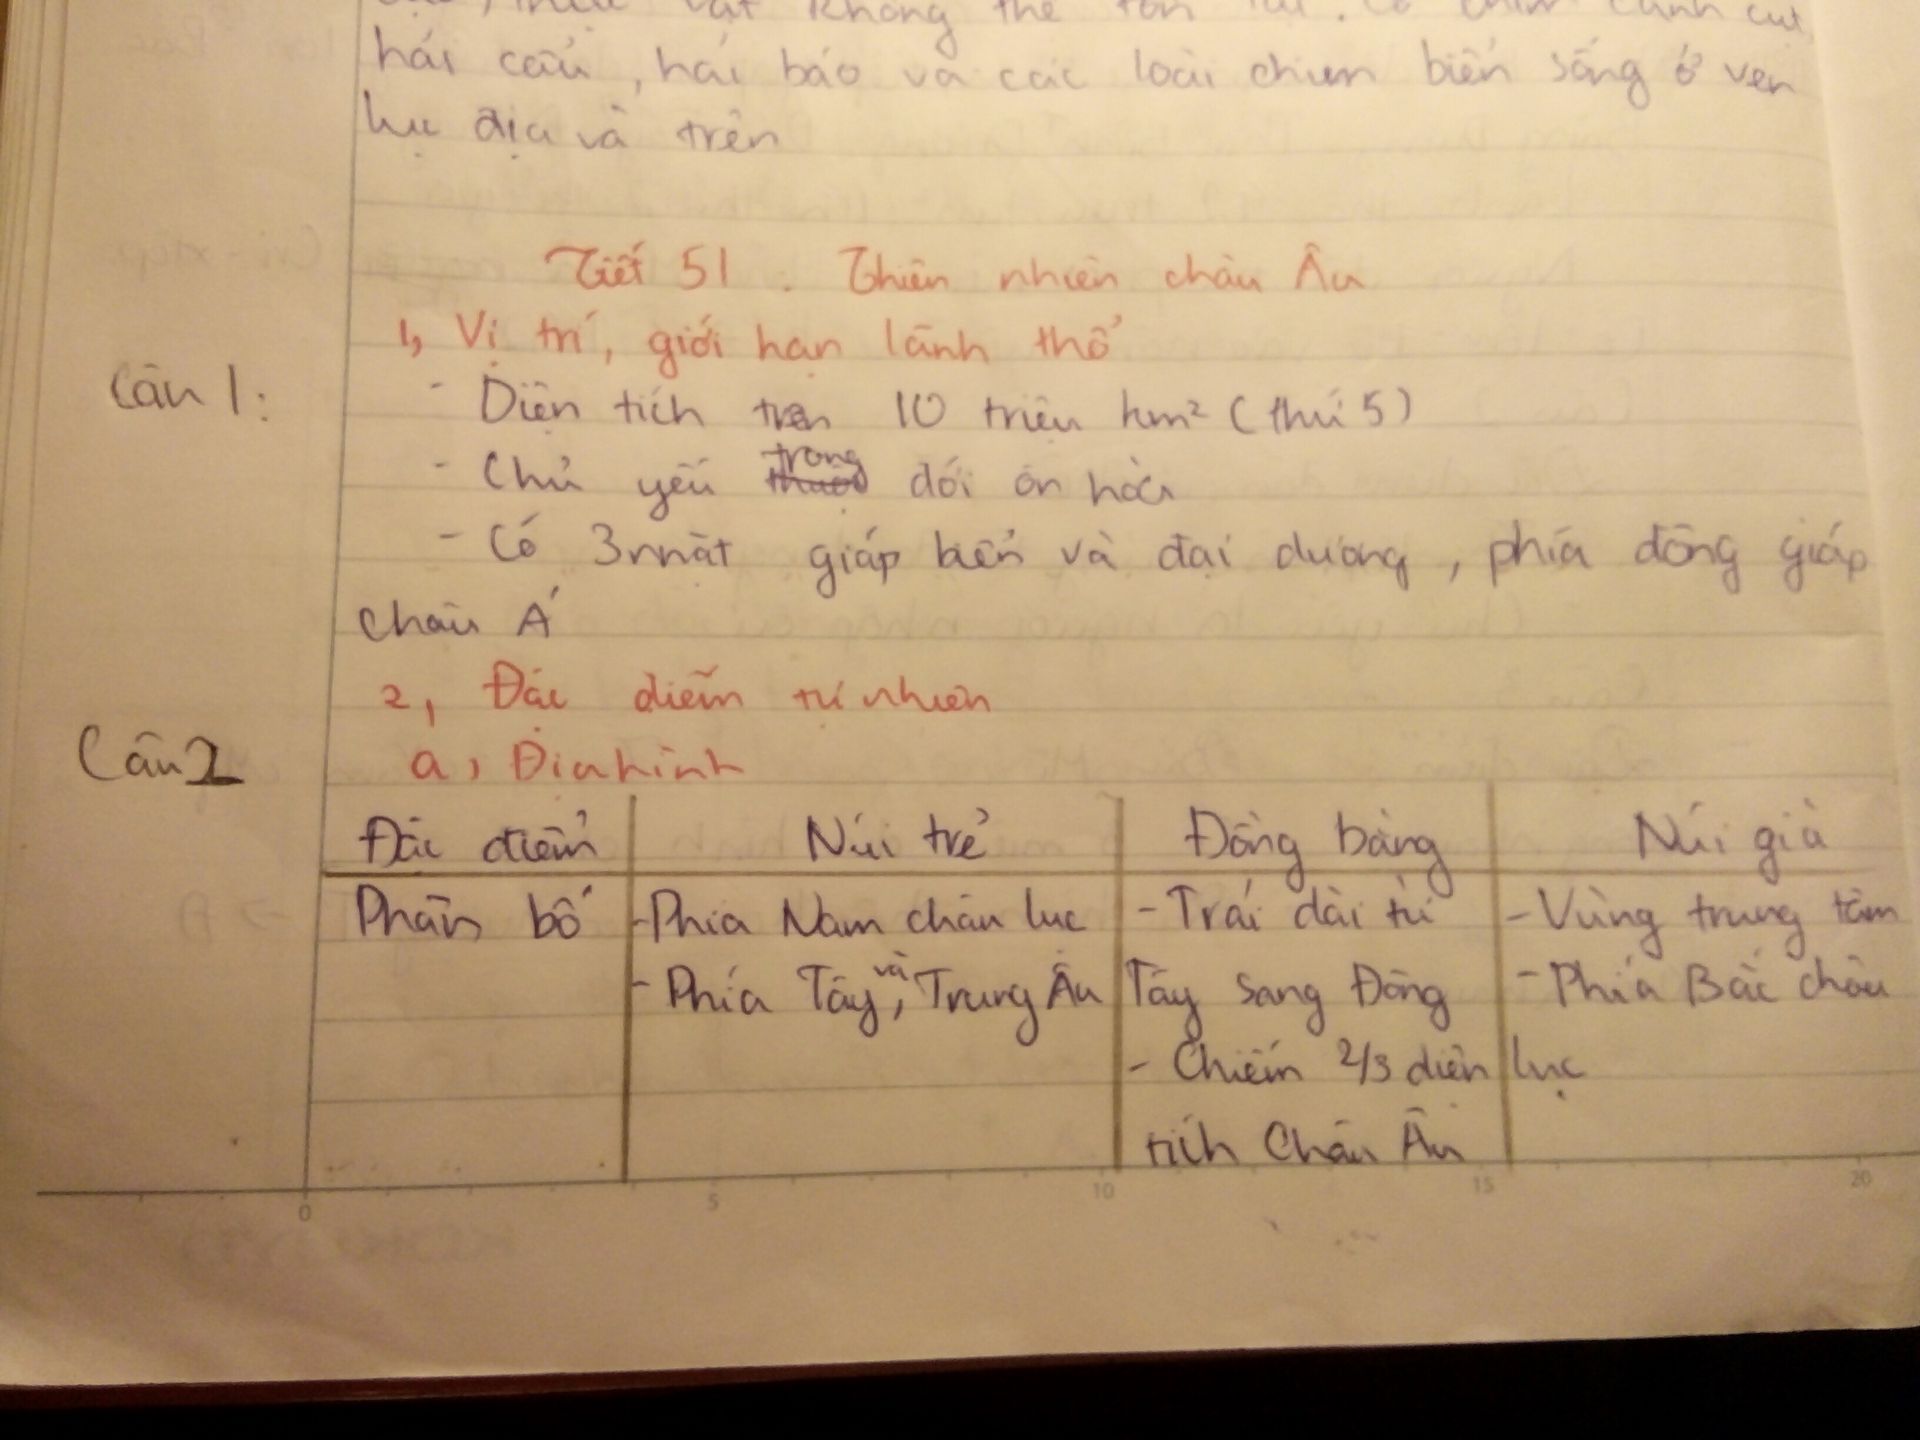 vật không thể tồn tại. Có chim cánh cụt
hải cẩu, hải báo và các loài chim biển sống ở ven
lục địa và trên
Tiết 51. Thiên nhiên châu Âu
1, Vị trí, giới hạn lãnh thổ
Câu 1:
- Diện tích trên 10 triệu km² (thứ 5)
- Chủ yếu trong đới ôn hòa
- Có 3 mặt giáp biển và đại dương, phía đông giáp
châu Á
2, Đặc điểm tự nhiên
Câu 2
a, Địa hình
Đặc điểm Núi trẻ Đồng bằng Núi già
Phân bố - Phía Nam châu lục - Trải dài từ - Vùng trung tâm
- Phía Tây, và Trung Âu Tây sang Đông - Phía Bắc châu
- Chiếm 2/3 diện lục
tích Châu Âu
0 5 10 15 20